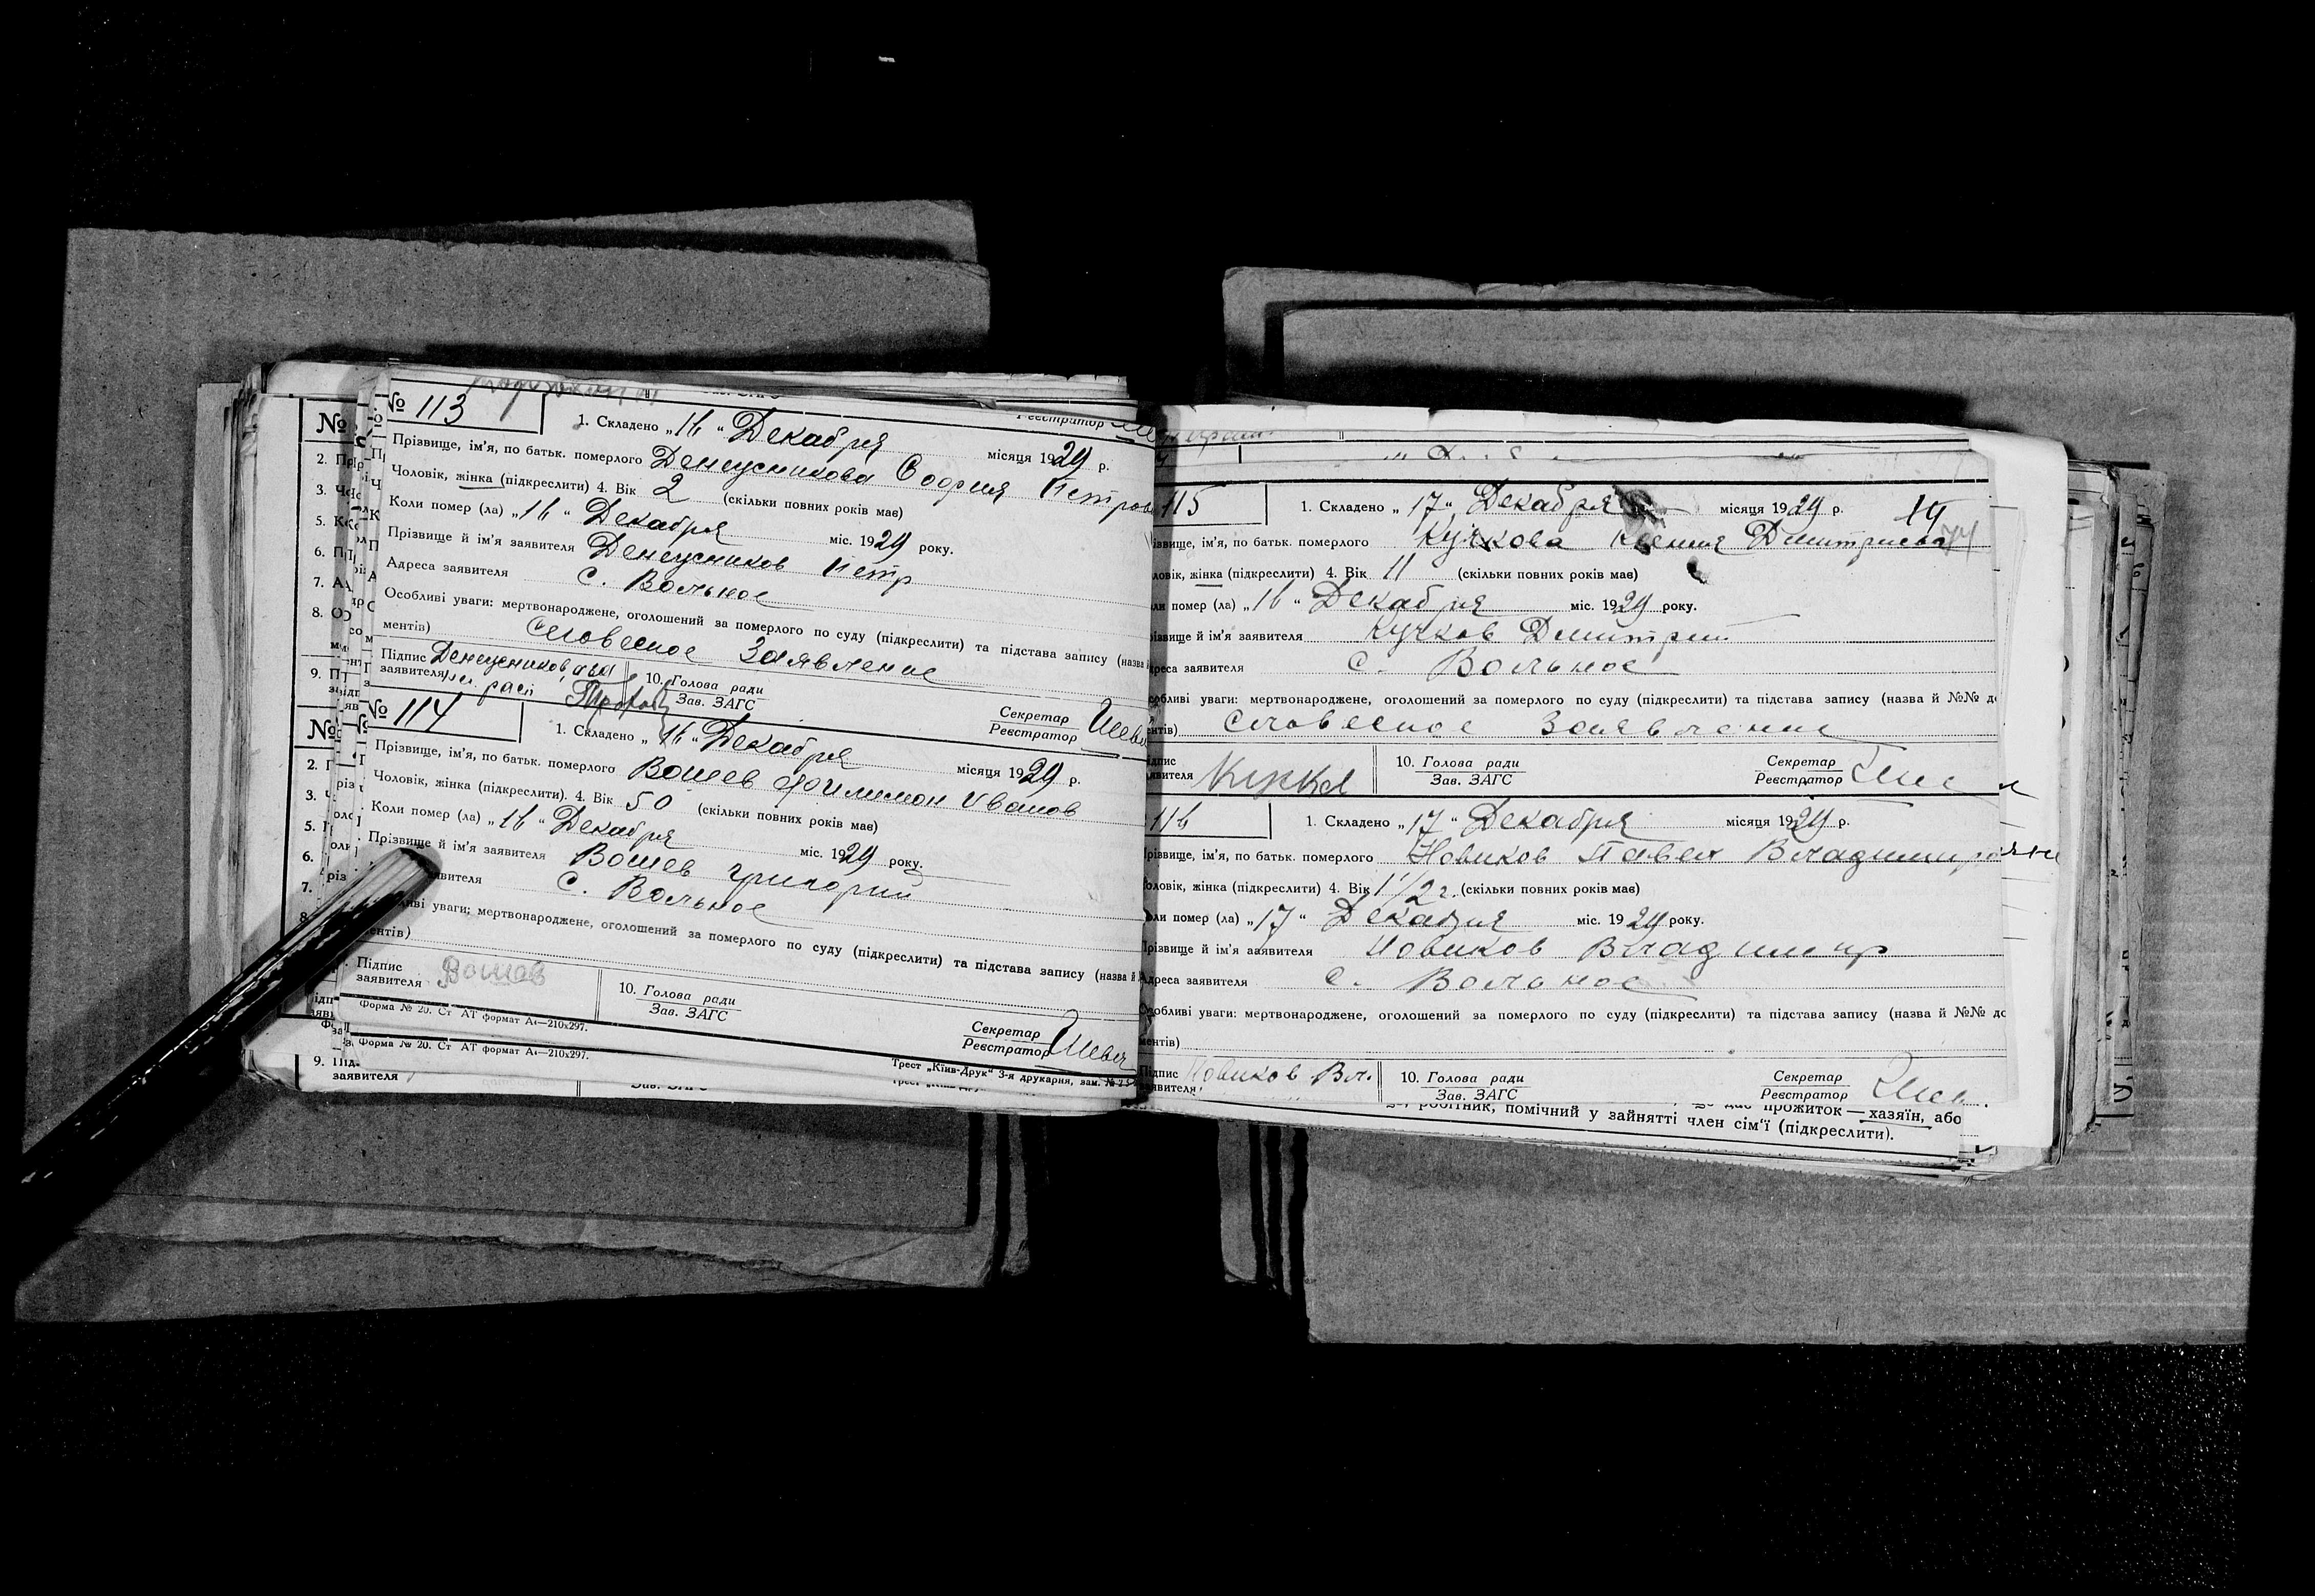 № 113
1. Складено „16“ Декабря місяця 1929 р.
Прізвище, ім'я, по батьк. померлого Денеусникова София Петров
Чоловік, жінка (підкреслити) 4. Вік 2 (скільки повних років має)
Коли помер (ла) „16“ Декабря міс. 1929 року.
Прізвище й ім'я заявителя Денеусников Петр
Адреса заявителя с. Вольное
Особливі уваги: мертвонароджене, оголошений за померлого по суду (підкреслити) та підстава запису (назва й
ментів) Словесное Заявление
Підпис заявителя Денеусников
10. Голова ради
Зав. ЗАГС
Секретар
Реєстратор
№ 114
1. Складено „16“ Декабря місяця 1929 р.
Прізвище, ім'я, по батьк. померлого Вошев Филимон Иванов
Чоловік, жінка (підкреслити). 4. Вік 50 (скільки повних років має)
Коли помер (ла) „16“ Декабря міс. 1929 року.
Прізвище й ім'я заявителя Вошев Григорий
явителя с. Вольное
уваги; мертвонароджене, оголошений за померлого по суду (підкреслити) та підстава запису (назва й
ментів)
Підпис заявителя Вошев
10. Голова ради
Зав. ЗАГС
Секретар
Реєстратор
Форма № 20. Ст АТ формат А4—210х297.
Форма № 20. Ст АТ формат А4—210х297.
Трест „Київ-Друк“ 3-я друкарня, зам. №
9. Під
заявителя
115
1. Складено „17“ Декабря місяця 1929 р.
ізвище, ім'я, по батьк. померлого Кучкова Ксения Дмитриева
ловік, жінка (підкреслити) 4. Вік 11 (скільки повних років має)
ли помер (ла) „16“ Декабря міс. 1929 року.
ізвище й ім'я заявителя Кучков Дмитрий
реса заявителя с. Вольное
собливі уваги: мертвонароджене, оголошений за померлого по суду (підкреслити) та підстава запису (назва й №№ до
ентів) Словесное Заявление
ідпис
явителя
10. Голова ради
Зав. ЗАГС
Секретар
Реєстратор
116
1. Складено „17“ Декабря місяця 1929 р.
Прізвище, ім'я, по батьк. померлого Новиков Павел Владимиров
оловік, жінка (підкреслити) 4. Вік 1 1/2 г. (скільки повних років має)
ли помер (ла) „17“ Декабря міс. 1929 року.
Прізвище й ім'я заявителя Новиков Владимир
Адреса заявителя с. Вольное
Особливі уваги: мертвонароджене, оголошений за померлого по суду (підкреслити) та підстава запису (назва й №№ до
ментів)
Підпис
явителя Новиков Вл.
10. Голова ради
Зав. ЗАГС
Секретар
Реєстратор
робітник, помічний у зайнятті член сім'ї (підкреслити).
прожиток — хазяїн, або